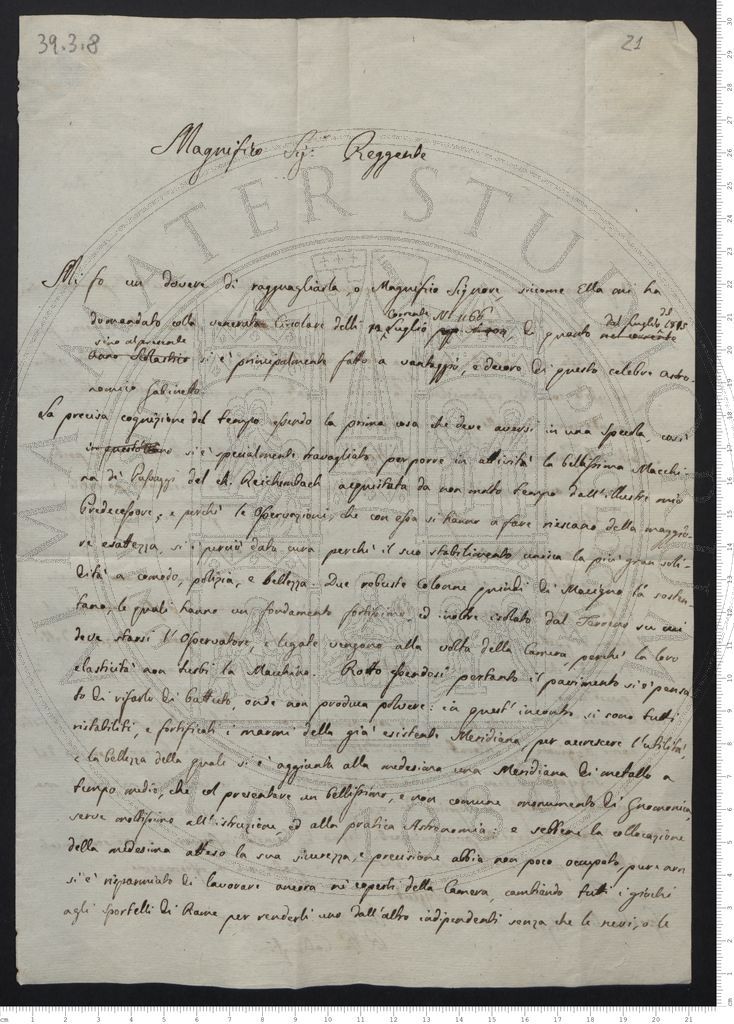 39.3.8
21
Magnifico Sig.r Reggente
Mi fo un dovere di ragguagliarla, o Magnifico Signore, siccome Ella mi ha
domandato colla venerata Circolare delli 12 corrente Luglio N.° 1166, di quanto dal Luglio del 1815 nel corrente
sino al presente
Anno Scolastico si è principalmente fatto a vantaggio, e decoro di questo celebre Astro-
nomico Gabinetto.
La precisa cognizione del tempo essendo la prima cosa che deve aversi in una Specola, così
in quest'Anno si è specialmente travagliato per porre in attività la bellissima Macchi-
na di Passaggi del ch. Reichembach acquistata da non molto tempo dall'illustre mio
Predecessore; e perchè le Osservazioni, che con essa si hanno a fare riescano della maggio-
re esattezza, si è perciò data cura perchè il suo stabilimento unisca la più gran soli-
dità a comodo, polizia, e bellezza. Due robuste Colonne quindi di Macigno la sosten-
tano, le quali hanno un fondamento fortissimo, ed inoltre isolato dal Terreno su cui
deve starsi l'Osservatore, e legate vengono alla volta della Camera perchè la loro
elasticità non turbi la Macchina. Rotto essendosi pertanto il pavimento si è pensa
to di rifarlo di battuto, onde non produca polvere: in quest'incontro si sono tutti
ristabiliti, e fortificati i marmi della già esistente Meridiana, per accrescere l'utilità,
e la bellezza della quale si è aggiunta alla medesima una Meridiana di metallo a
tempo medio, che col presentare un bellissimo, e non comune monumento di Gnomonica,
serve moltissimo all'istruzione, ed alla pratica Astronomia: e sebbene la collocazione
della medesima atteso la sua sicurezza, e precisione abbia non poco occupato, pure non
si è risparmiato di lavorare ancora ne' coperti della Camera, cambiando tutti i giochi
agli sportelli di Rame per renderli uno dall'altro indipendenti senza che le nevi, o le